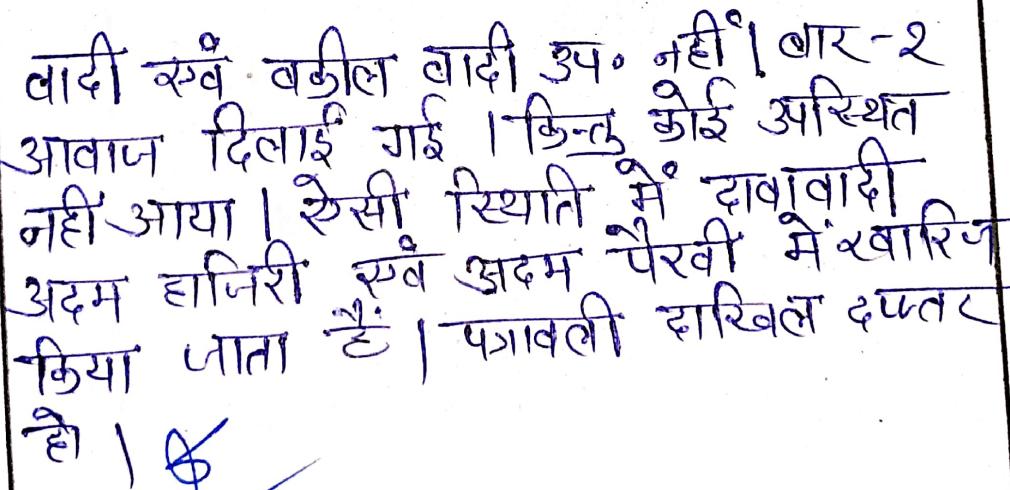 वादी एवं वकील वादी उप० नहीं। बार-२
आवाज दिलाई गई । किन्तु कोई उपस्थित
नहीं आया । ऐसी स्थिति में दावावादी
अदम हाजिरी एवं अदम पैरवी में खारिज
किया जाता हैं । पत्रावली दाखिल दफ्तर
हो ।